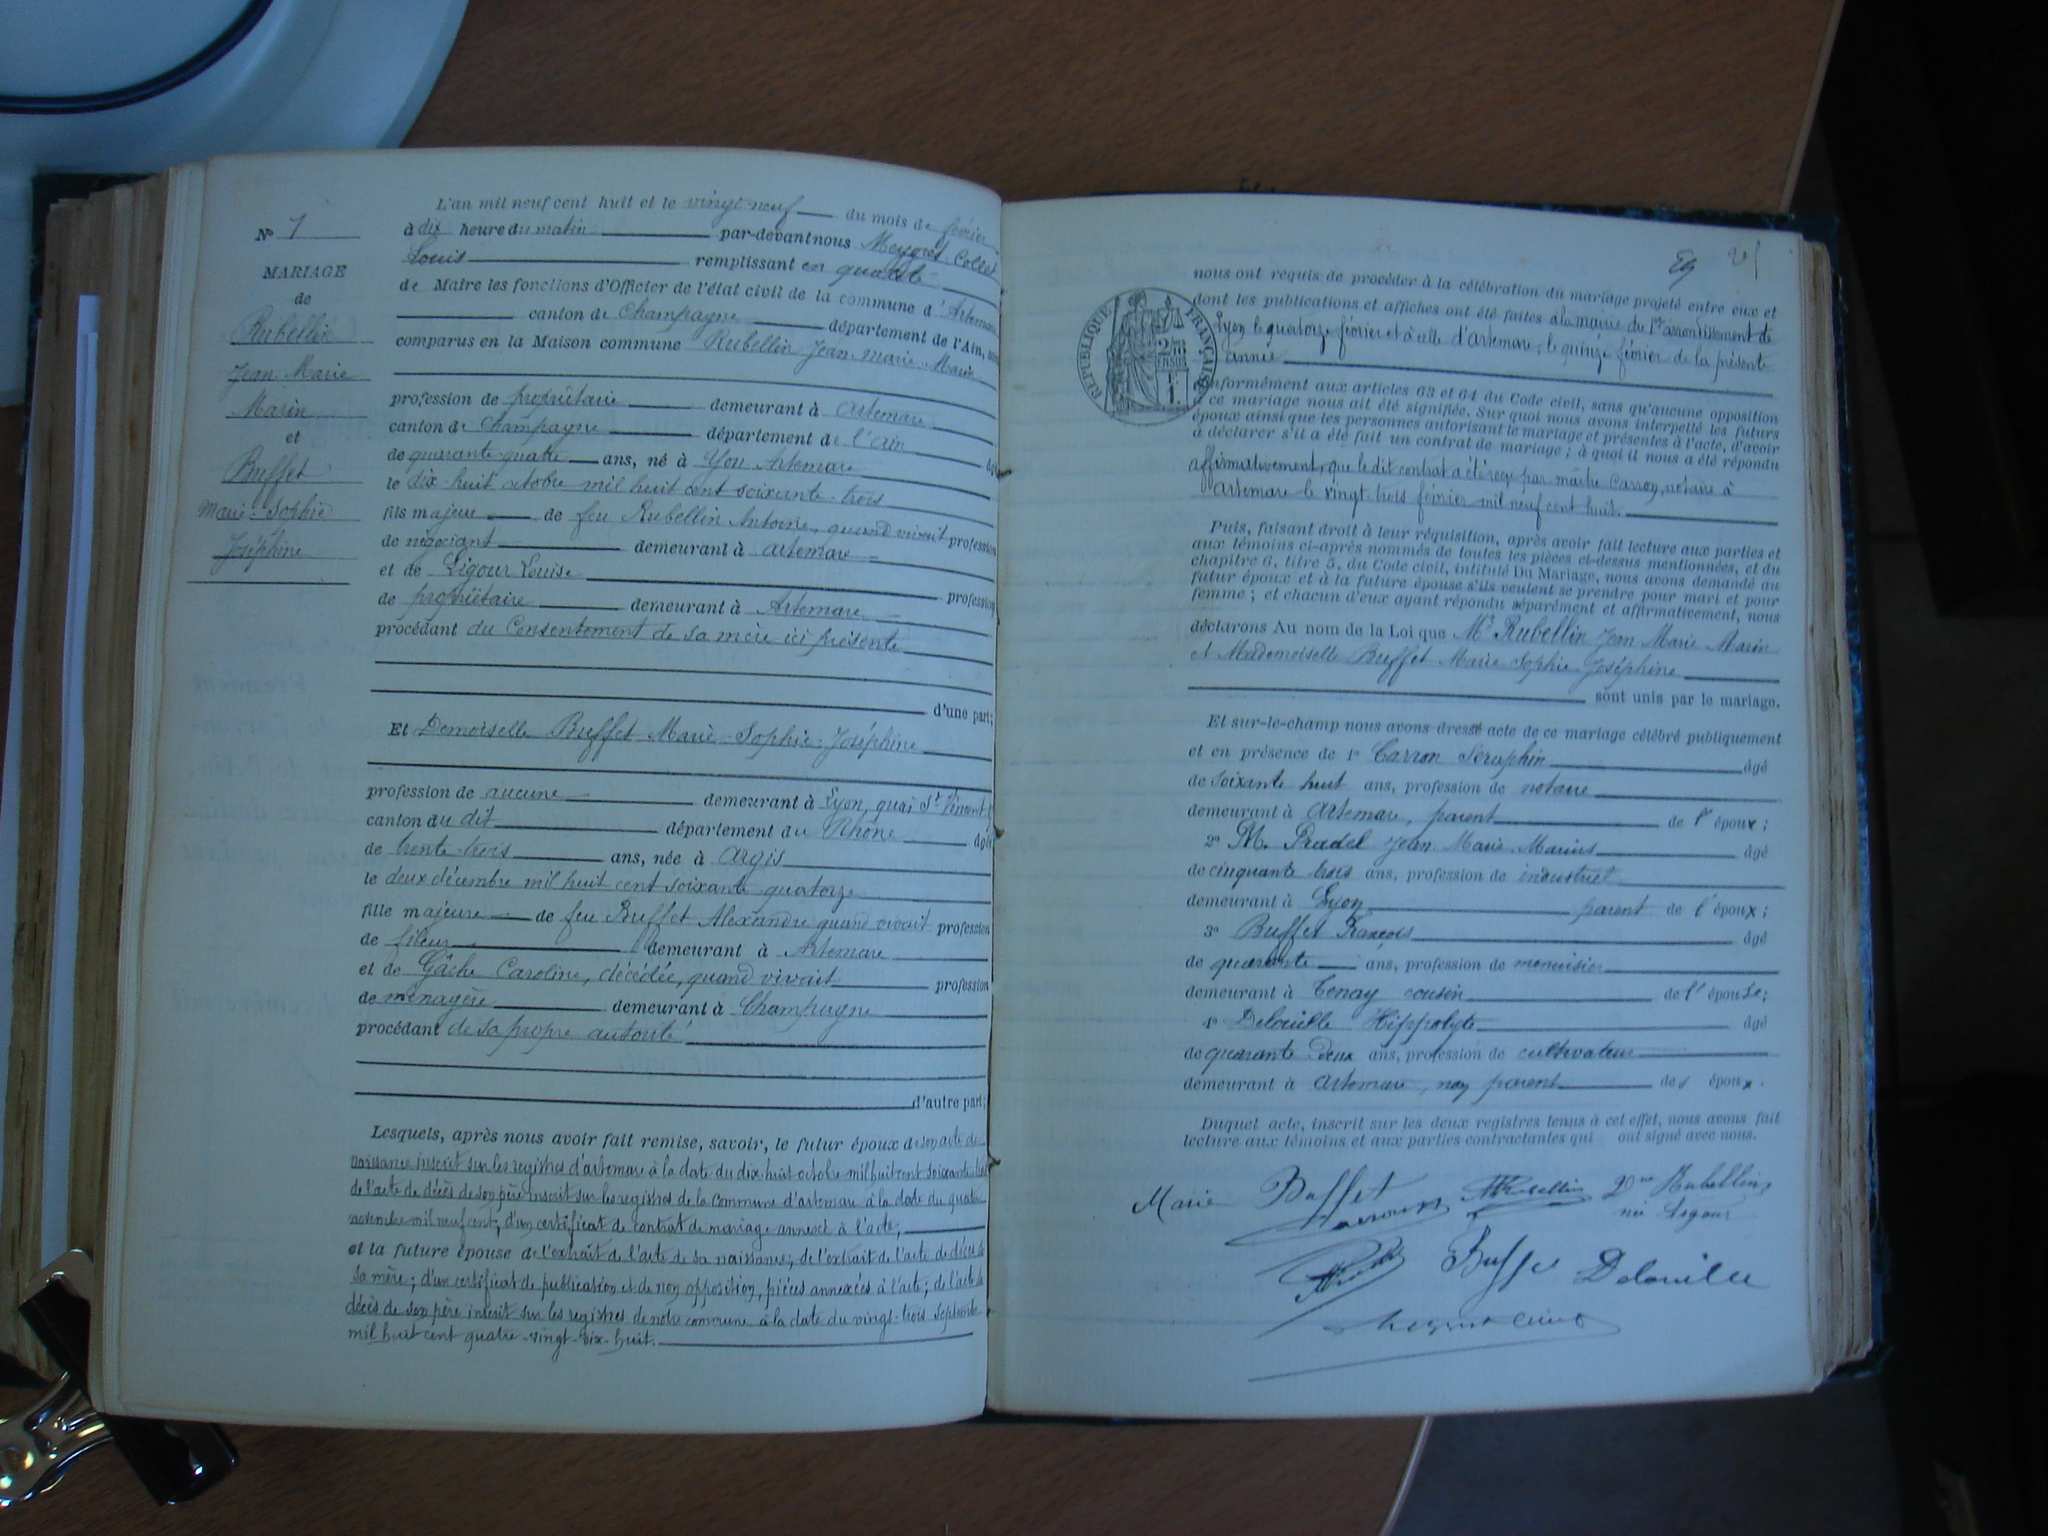 N° 7
MARIAGE
de
Rubellin
Jean Marie
Marin
et
Buffet
Marie-Sophie
Joséphine
L'an mil neuf cent huit et le vingt neuf du mois de février
à dix heure du matin par-devant nous Meygret-Collet
Louis remplissant en qualité
de Maire les fonctions d'Officier de l'état civil de la commune d'Artemare
canton de Champagne département de l'Ain,
comparus en la Maison commune Rubellin Jean-Marie-Marin
profession de propriétaire demeurant à Artemare
canton de Champagne département de l'Ain âgé
de quarante-quatre ans, né à Yon Artemare
le dix-huit octobre mil huit cent soixante-trois
fils majeur de feu Rubellin Antoine, quand vivait profession
de négociant demeurant à Artemare
et de Ligour Louise profession
de propriétaire demeurant à Artemare
procédant du Consentement de sa mère ici présente
d'une part;
Et Demoiselle Buffet Marie-Sophie-Joséphine
profession de aucune demeurant à Lyon, quai St Vincent
canton du dit département du Rhône âgée
de trente-trois ans, née à Argis
le deux décembre mil huit cent soixante quatorze
fille majeure de feu Buffet Alexandre quand vivait profession
de fileur demeurant à Artemare
et de Gâche Caroline, décédée, quand vivait profession
de ménagère demeurant à Champagne
procédant de sa propre autorité
d'autre part;
Lesquels, après nous avoir fait remise, savoir, le futur époux de son acte de
naissance inscrit sur les registres d'artemare à la date du dix-huit octobre mil huit cent soixante-trois
de l'acte de décès de son père inscrit sur les registres de la Commune d'artemare à la date du quatre
novembre mil neuf cent, d'un certificat de contrat de mariage annexé à l'acte;
et la future épouse de l'extrait de l'acte de sa naissance; de l'extrait de l'acte de décès de
sa mère; d'un certificat de publication et de non opposition, pièces annexées à l'acte; de l'acte de
décès de son père inscrit sur les registres de notre commune à la date du vingt-trois septembre
mil huit cent quatre-vingt-dix-huit.
nous ont requis de procéder à la célébration du mariage projeté entre eux et
dont les publications et affiches ont été faites à la mairie du 1er arrondissement de
Lyon le quatorze février et à celle d'artemare, le quinze février de la présente
année
RÉPUBLIQUE FRANÇAISE
conformément aux articles 63 et 64 du Code civil, sans qu'aucune opposition
à ce mariage nous ait été signifiée. Sur quoi nous avons interpellé les futurs
époux ainsi que les personnes autorisant le mariage et présentes à l'acte, d'avoir
à déclarer s'il a été fait un contrat de mariage; à quoi il nous a été répondu
affirmativement, que le dit contrat a été reçu par maître Carron, notaire à
Artemare le vingt-trois février mil neuf cent huit.
Puis, faisant droit à leur réquisition, après avoir fait lecture aux parties et
aux témoins ci-après nommés de toutes les pièces ci-dessus mentionnées, et du
chapitre 6, titre 5, du Code civil, intitulé Du Mariage, nous avons demandé au
futur époux et à la future épouse s'ils veulent se prendre pour mari et pour
femme; et chacun d'eux ayant répondu séparément et affirmativement, nous
déclarons Au nom de la Loi que Mr Rubellin Jean Marie Marin
et Mademoiselle Buffet Marie Sophie Joséphine
sont unis par le mariage.
Et sur-le-champ nous avons dressé acte de ce mariage célébré publiquement
et en présence de 1° Carron Séraphin âgé
de soixante huit ans, profession de notaire
demeurant à Artemare, parent de l'époux;
2° M. Pradel Jean-Marie-Marius âgé
de cinquante trois ans, profession de industriel
demeurant à Lyon parent de l'époux;
3° Buffet François âgé
de quarante ans, profession de menuisier
demeurant à Tenay cousin de l'épouse;
4° Delouille Hippolyte âgé
de quarante deux ans, profession de cultivateur
demeurant à Artemare, non parent des époux.
Duquel acte, inscrit sur les deux registres tenus à cet effet, nous avons fait
lecture aux témoins et aux parties contractantes qui ont signé avec nous.
Marie Buffet Rubellin Rubellin
née Ligour
Buffet Delouille